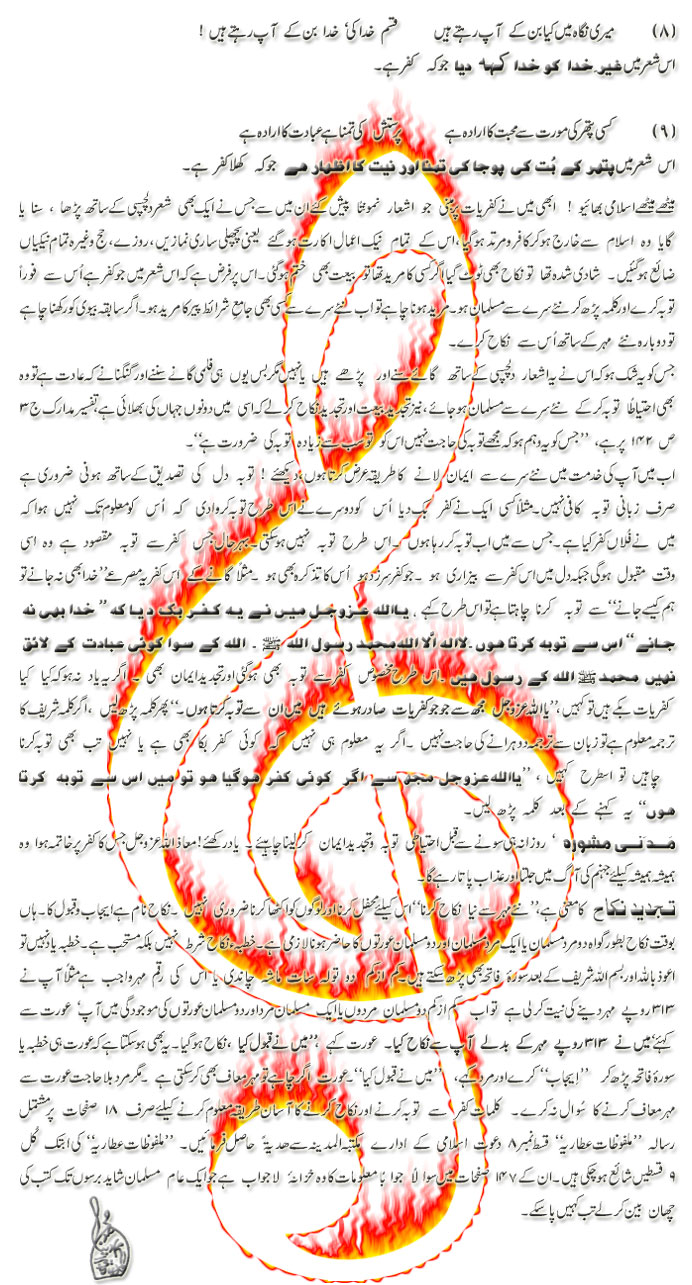 (۸) میری نگاہ میں کیا بن کے آپ رہتے ہیں قسم خدا کی' خدا بن کے آپ رہتے ہیں !
اس شعر میں غیر خدا کو خدا کہہ دیا جو کہ کفر ہے۔
(۹) کسی پتھر کی مورت سے محبت کا ارادہ ہے پرستش کی تمنا ہے عبادت کا ارادہ ہے
اس شعر میں پتھر کے بُت کی پوجا کی تمنا اور نیت کا اظہار ہے جو کہ کھلا کفر ہے۔
میٹھے میٹھے اسلامی بھائیو ! ابھی میں نے کفریات پر مبنی جو اشعار نمونتاً پیش کئے ان میں سے جس نے ایک بھی شعر دلچسپی کے ساتھ پڑھا ، سنا یا
گایا وہ اسلام سے خارج ہو کر کافر و مرتد ہو گیا ،اس کے تمام نیک اعمال اکارت ہو گئے یعنی پچھلی ساری نمازیں، روزے، حج وغیرہ تمام نیکیاں
ضائع ہو گئیں۔ شادی شدہ تھا تو نکاح بھی ٹوٹ گیا اگر کسی کا مرید تھا تو بیعت بھی ختم ہو گئی۔اس پر فرض ہے کہ اس شعر میں جو کفر ہے اُس سے فوراً
توبہ کرے اور کلمہ پڑھ کر نئے سرے سے مسلمان ہو۔ مرید ہونا چاہے تو اب نئے سرے سے کسی بھی جامع شرائط پیر کا مرید ہو۔ اگر سابقہ بیوی کو رکھنا چاہے
تو دوبارہ نئے مہر کے ساتھ اُس سے نکاح کرے۔
جس کو یہ شک ہو کہ اس نے یہ اشعار دلچسپی کے ساتھ گائے سنے اور پڑھے ہیں یا نہیں مگر بس یوں ہی فلمی گانے سننے اور گنگنانے کہ عادت ہے تو وہ
بھی احتیاطاً توبہ کر کے نئے سرے سے مسلمان ہو جائے ،نیز تجدید بیعت اور تجدید نکاح کر لے کہ اسی میں دونوں جہاں کی بھلائی ہے ،تفسیر مدارک ج ۳
ص ۱۴۲ پر ہے، ''جس کو یہ وہم ہو کہ مجھے توبہ کی حاجت نہیں اس کو تو سب سے زیادہ توبہ کی ضرورت ہے''۔
اب میں آپ کی خدمت میں نئے سرے سے ایمان لانے کا طریقہ عرض کرتا ہوں ،دیکھئے ! توبہ دل کی تصدیق کے ساتھ ہونی ضروری ہے
صرف زبانی توبہ کافی نہیں۔ مثلاً کسی ایک نے کفر بک دیا اُس کو دوسرے نے اس طرح توبہ کروا دی کہ اُس کو معلوم تک نہیں ہوا کہ
میں نے فُلاں کفر کیا ہے۔ جس سے میں اب توبہ کر رہا ہوں ۔اس طرح توبہ نہیں ہو سکتی۔ بہر حال جس کفر سے توبہ مقصود ہے وہ اسی
وقت مقبول ہو گی جبکہ دل میں اس کفر سے بیزاری ہو ۔جو کفر سرزد ہو اُس کا تذکرہ بھی ہو ۔مثلاً گانے کے اس کفریہ مصرعے ''خدا بھی نہ جانے تو
ہم کیسے جانے'' سے توبہ کرنا چاہتا ہے تو اس طرح کہے ، یااللہ عزوجل میں نے یہ کفر بک دیا کہ ''خدا بھی نہ
جانے'' اس سے توبہ کرتا ہوں۔لاالہ الا اللہ محمد رسول اللہ ﷺ ۔ اللہ کے سوا کوئی عبادت کے لائق
نہیں محمد ﷺ اللہ کے رسول ہیں ۔اس طرح مخصوص کفر سے توبہ بھی ہو گئی اور تجدید ایمان بھی ۔اگر یہ یاد نہ ہو کہ کیا کیا
کفریات بکے ہیں تو کہیں،''یا اللہ عزوجل مجھ سے جو جو کفریات صادر ہوئے ہیں میں ان سے توبہ کرتا ہوں۔'' پھر کلمہ پڑھ لیں ،اگر کلمہ شریف کا
ترجمہ معلوم ہے تو زبان سے ترجمہ دوہرانے کی حاجت نہیں ۔اگر یہ معلوم ہی نہیں کہ کوئی کفر بکا بھی ہے یا نہیں تب بھی توبہ کرنا
چاہیں تو اسطرح کہیں ، ''یااللہ عزوجل مجھ سے اگر کوئی کفر ہو گیا ہو تو میں اس سے توبہ کرتا
ہوں'' یہ کہنے کے بعد کلمہ پڑھ لیں۔
مَدَنی مشورہ ' روزانہ ہی سونے سے قبل احتیاطی توبہ و تجدید ایمان کر لینا چاہیئے۔ یاد رکھئے !معاذ اللہ عزوجل جس کا کفر پر خاتمہ ہوا وہ
ہمیشہ ہمیشہ کیلئے جہنم کی آگ میں جلتا اور عذاب پاتا رہے گا۔
تجدید نکاح کا معنی ہے، ''نئے مہر سے نیا نکاح کرنا'' اس کیلئے محفل کرنا اور لوگوں کو اکٹھا کرنا ضروری نہیں ۔نکاح نام ہے ایجاب و قبول کا۔ ہاں
بوقت نکاح بطور گواہ دو مرد مسلمان یا ایک مرد مسلمان اور دو مسلمان عورتوں کا حاضر ہونا لازمی ہے۔ خطبہء نکاح شرط نہیں بلکہ مستحب ہے۔ خطبہ یاد نہیں تو
اعوذ باللہ اور بسم اللہ شریف کے بعد سورۂ فاتحہ بھی پڑھ سکتے ہیں۔ کم از کم دو تولہ سات ماشہ چاندی یا اس کی رقم مہر واجب ہے مثلاً آپ نے
۳۱۳ روپے مہر دینے کی نیت کر لی ہے تو اب کم از کم دو مسلمان مردوں یا ایک مسلمان مرد اور دو مسلمان عورتوں کی موجودگی میں آپ' عورت سے
کہئے'میں نے ۳۱۳ روپے مہر کے بدلے آپ سے نکاح کیا۔ عورت کہے ''میں نے قبول کیا ،نکاح ہو گیا۔ یہ بھی ہو سکتا ہے کہ عورت ہی خطبہ یا
سورۂ فاتحہ پڑھ کر ''ایجاب'' کرے اور مرد کہے، ''میں نے قبول کیا''۔ عورت اگر چاہے تو مہر معاف بھی کر سکتی ہے ۔مگر مرد بلا حاجت عورت سے
مہر معاف کرنے کا سُوال نہ کرے۔ کلمات کفر سے توبہ کرنے اور نکاح کرنے کا آسان طریقہ معلوم کرنے کیلئے صرف ۱۸ صفحات پر مشتمل
رسالہ ''ملفوظات عطاریہ'' قسط نمبر ۸ دعوت اسلامی کے ادارے مکتبۃ المدینہ سے ھدیۃً حاصل فرمائیں۔ ''ملفوظات عطاریہ'' کی ابتک کُل
۹ قسطیں شائع ہو چکی ہیں۔ ان کے ۱۴۷ صفحات میں سوالاً جواباً معلومات کا وہ خزانۂ لا جواب ہے جو ایک عام مسلمان شاید برسوں تک کتب کی
چھان بین کر لے تب کہیں پا سکے۔